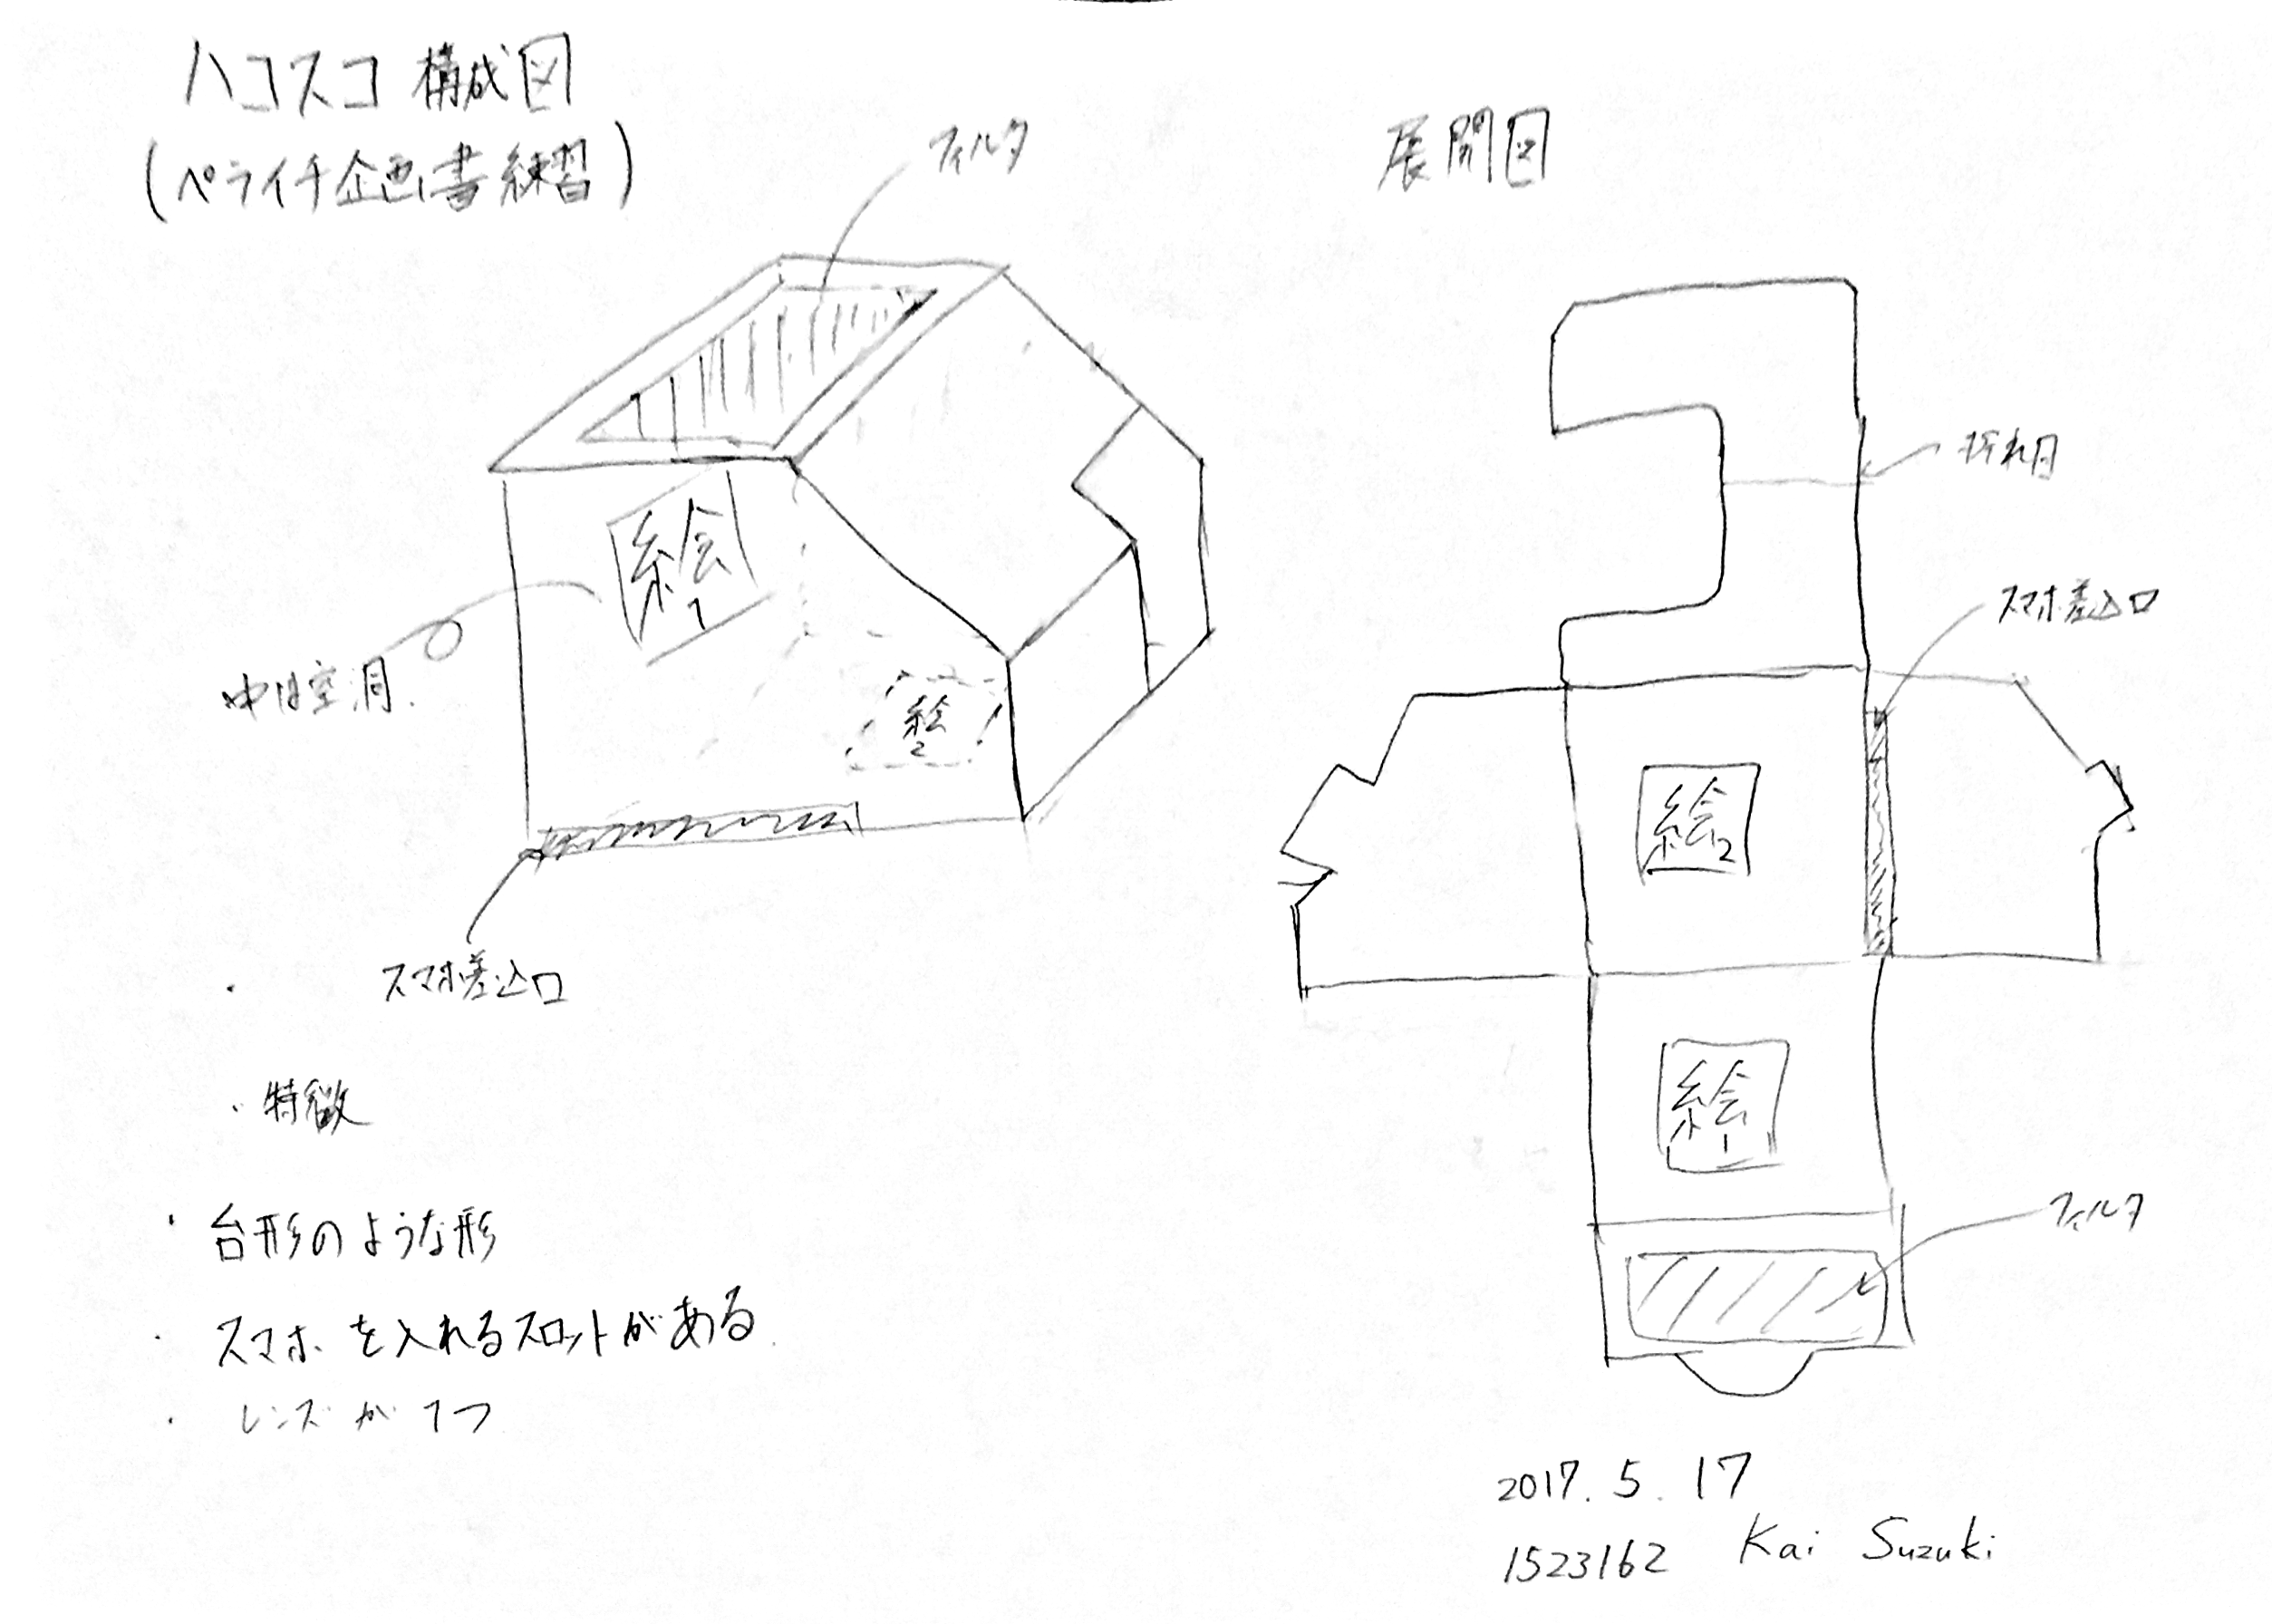 ハコスコ 構成図
(ペライチ企画書練習)
フィルタ
絵
1
中は空洞.
絵
2
スマホ差込口
・特徴
・台形のような形
・スマホを入れるスロットがある.
・レンズが1つ
展開図
折れ目
スマホ差込口
絵
2
絵
1
フィルタ
2017. 5. 17
1523162 Kai Suzuki